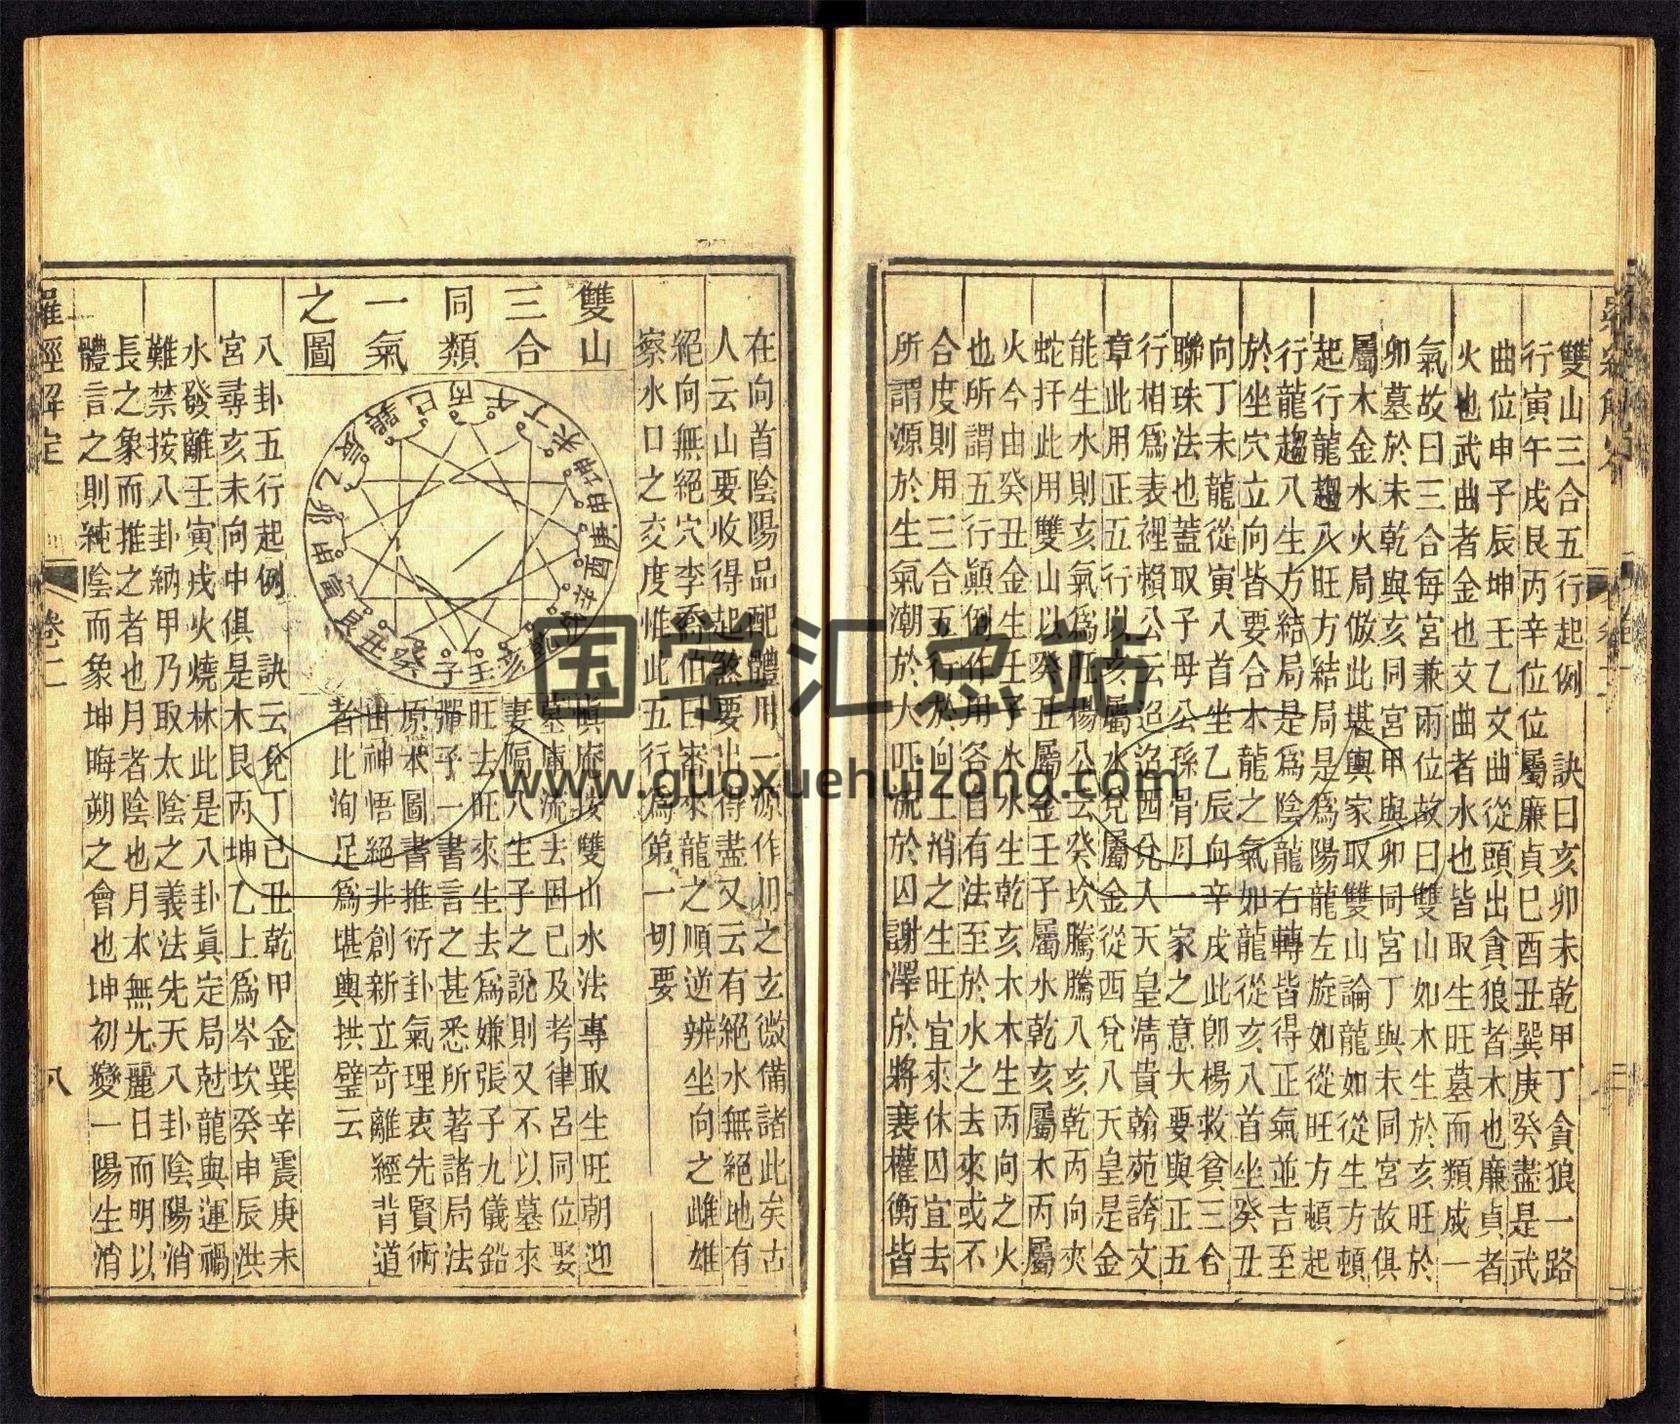 雙山三合五行起例　訣曰亥卯未乾甲丁貪狼一路
行寅午戌艮丙辛位位屬廉貞巳酉丑巽庚癸盡是武
曲位申子辰坤壬乙文曲從頭出貪狼者木也廉貞者
火也武曲者金也文曲者水也皆取生旺墓而類成一
氣故曰三合每宮兼兩位故曰雙山如木生於亥旺於
卯墓於未乾與亥同宮甲與卯同宮丁與未同宮故俱
屬木金水火局倣此堪輿家取雙山論龍如從生方頓
起行龍趨入旺方結局是為陽龍左旋如從旺方頓起
行龍趨入生方結局是為陰龍右轉皆得正氣並吉至
於坐穴立向皆要合本龍之氣如龍從亥入首坐癸丑
向丁未龍從寅入首坐乙辰向辛戌此卽楊救貧三合
聯珠法也蓋取子母公孫骨月一家之意大要與正五
行相為表裡賴公云迢迢西兌入天皇清貴翰苑誇文
章此用正五行以亥屬水兌屬金從西兌入天皇是金
能生水則亥氣為旺楊公云癸坎騰騰入亥乾丙向夾
蛇扦此用雙山以癸丑屬金壬子屬水乾亥屬木丙屬
火今由癸丑金生壬子水水生乾亥木木生丙向之火
也所謂五行顛倒作用各自有法至於水之去來或不
合度則用三合五行於向上消之生旺宜來休囚宜去
所謂源於生氣潮於大旺流於囚謝澤於將衰權衡皆
在向首陰陽品配體用一源作用之玄微備諸此矣古
人云山要收得起煞要出得盡又云有絕水無絕地有
絕向無絕穴李喬伯曰審來龍之順逆辨坐向之雌雄
察水口之交度惟此五行為第一切要
雙山
三合
同類
一氣
之圖
丙午丁未坤申庚酉辛戌乾亥壬子癸丑艮寅甲卯乙辰巽巳
按雙山水法專取生旺朝迎
墓庫流去因已及考律呂同位娶
妻隔八生子之說則又不以墓來
旺去旺來生去為嫌張子九儀鉛
彈子一書言之甚悉所著諸局法
原本圖書推衍卦氣理衷先賢術
由神悟絕非創新立奇離經背道
者比洵足為堪輿拱璧云
八卦五行起例　訣云兌丁巳丑乾甲金巽辛震庚未
宮尋亥未向中俱是木艮丙坤乙上為岑坎癸申辰洪
水發離壬寅戌火燒林此是八卦真定局尅龍與運禍
難禁按八卦納甲乃取太陰之義法先天八卦陰陽消
長之象而推之者也月者陰也月本無光麗日而明以
體言之則純陰而象坤晦朔之會也坤初變一陽生消
羅經解定
卷二
八
国学汇总站
www.guoxuehuizong.com